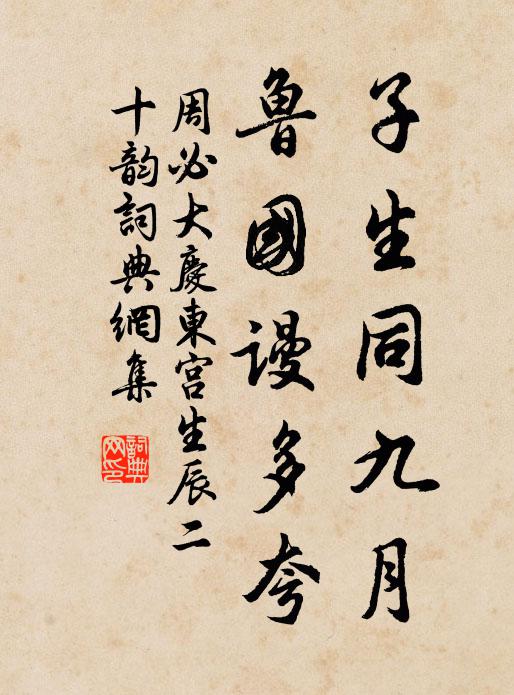 子生同九月
魯國謾多夸
周必大慶東宮生辰二
十韵詞典網集
詞典
网印